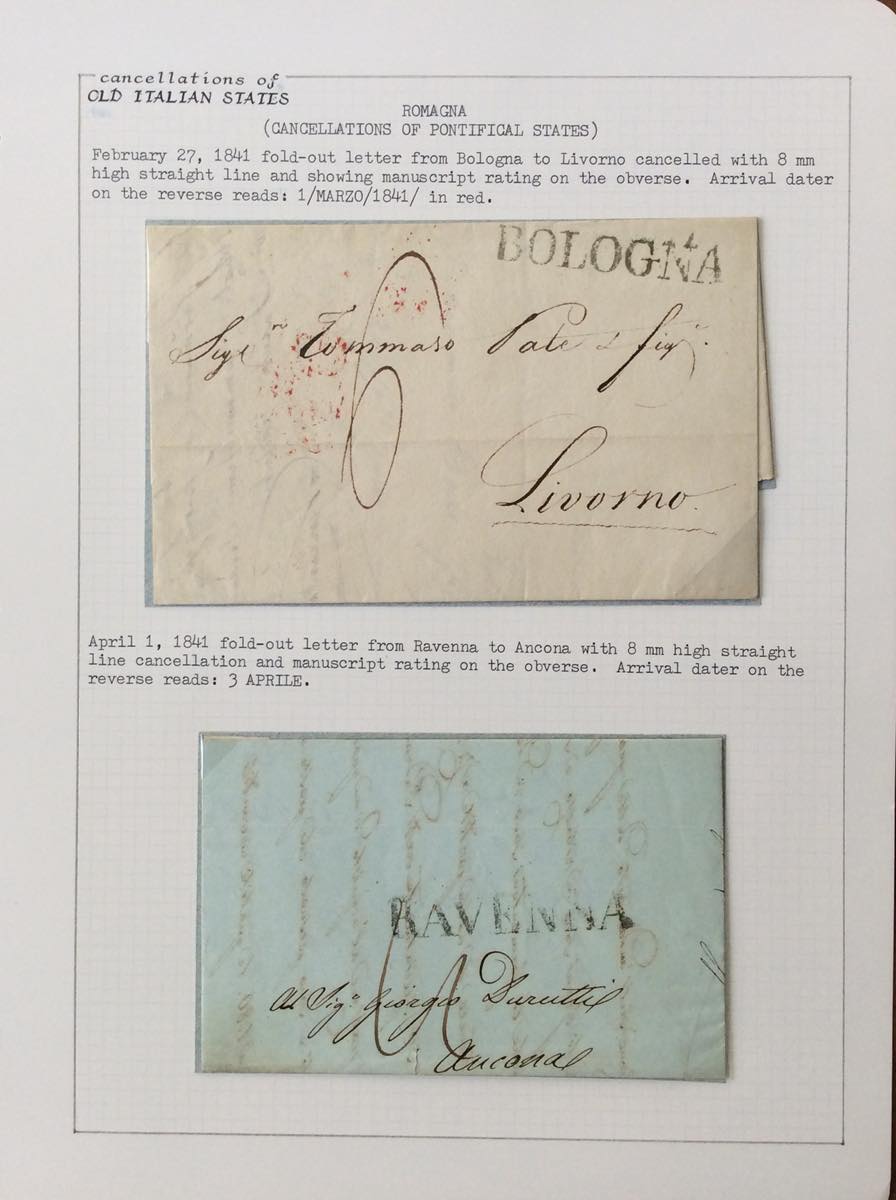 cancellations of
OLD ITALIAN STATES
ROMAGNA
(CANCELLATIONS OF PONTIFICAL STATES)
February 27, 1841 fold-out letter from Bologna to Livorno cancelled with 8 mm
high straight line and showing manuscript rating on the obverse. Arrival dater
on the reverse reads: 1/MARZO/1841/ in red.
BOLOGNA
Tommaso Pate
Livorno
April 1, 1841 fold-out letter from Ravenna to Ancona with 8 mm high straight
line cancellation and manuscript rating on the obverse. Arrival dater on the
reverse reads: 3 APRILE.
RAVENNA
Al Sig. Giorgio
Ancona